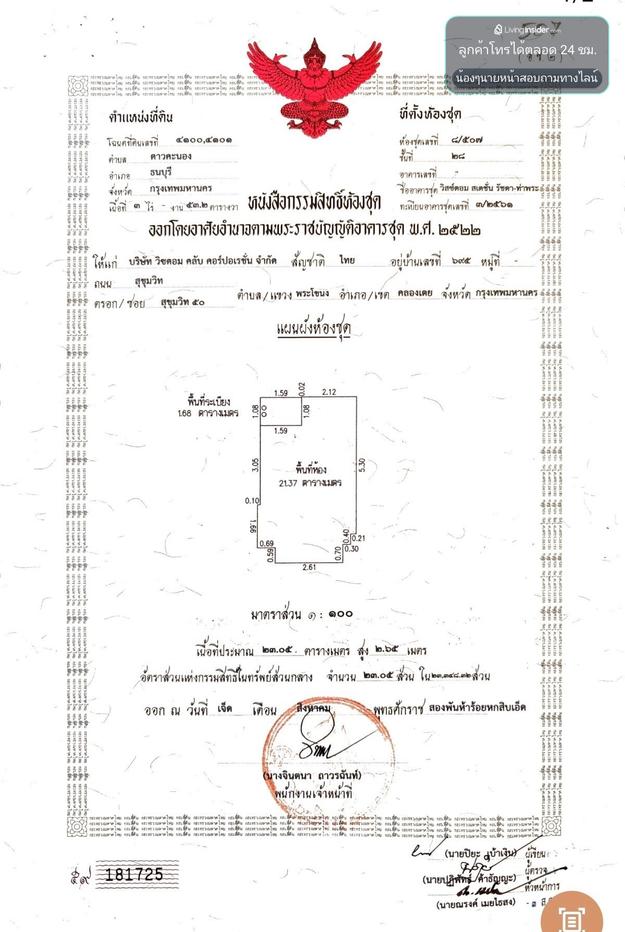 Livinginsider.com
ลูกค้าโทรได้ตลอด 24 ชม.
น้องๆนายหน้าสอบถามทางไลน์
ตำแหน่งที่ดิน
โฉนดที่ดินเลขที่ ๔๑๐๐,๔๑๐๑
ตำบล ดาวคะนอง
อำเภอ ธนบุรี
จังหวัด กรุงเทพมหานคร
เนื้อที่ ๓ ไร่ - งาน ๕๓.๒ ตารางวา
ที่ตั้งห้องชุด
ห้องชุดเลขที่ ๘/๕๐๗
ชั้นที่ ๒๘
อาคารเลขที่ -
ชื่ออาคารชุด วิสซ์ดอม สเตชั่น รัชดา-ท่าพระ
ทะเบียนอาคารชุดเลขที่ ๗/๒๕๖๑
หนังสือกรรมสิทธิ์ห้องชุด
ออกโดยอาศัยอำนาจตามพระราชบัญญัติอาคารชุด พ.ศ. ๒๕๒๒
ให้แก่ บริษัท วิซดอม คลับ คอร์ปอเรชั่น จำกัด สัญชาติ ไทย อยู่บ้านเลขที่ ๖๙๕ หมู่ที่ -
ถนน สุขุมวิท
ตรอก/ซอย สุขุมวิท ๕๐ ตำบล/แขวง พระโขนง อำเภอ/เขต คลองเตย จังหวัด กรุงเทพมหานคร
แผนผังห้องชุด
พื้นที่ระเบียง
1.68 ตารางเมตร
1.59
0.02
2.12
1.08
1.08
1.59
3.05
พื้นที่ห้อง
21.37 ตารางเมตร
5.30
0.10
1.66
0.69
0.59
2.61
0.70
0.30
0.40
0.21
มาตราส่วน ๑ : ๑๐๐
เนื้อที่ประมาณ ๒๓.๐๕ ตารางเมตร สูง ๒.๖๕ เมตร
อัตราส่วนแห่งกรรมสิทธิ์ในทรัพย์ส่วนกลาง จำนวน ๒๓.๐๕ ส่วน ใน ส่วน
ออก ณ วันที่ เจ็ด เดือน สิงหาคม พุทธศักราช สองพันห้าร้อยหกสิบเอ็ด
(นางจินตนา ถาวรฉันท์)
พนักงานเจ้าหน้าที่
๕๙ 181725
(นายปิยะ ) ผู้เขียน
(นายปฏิพัทธ์ คำธัญญะ) ผู้ตรวจ
หัวหน้าการ
(นายณรงค์ เมยไธสง)